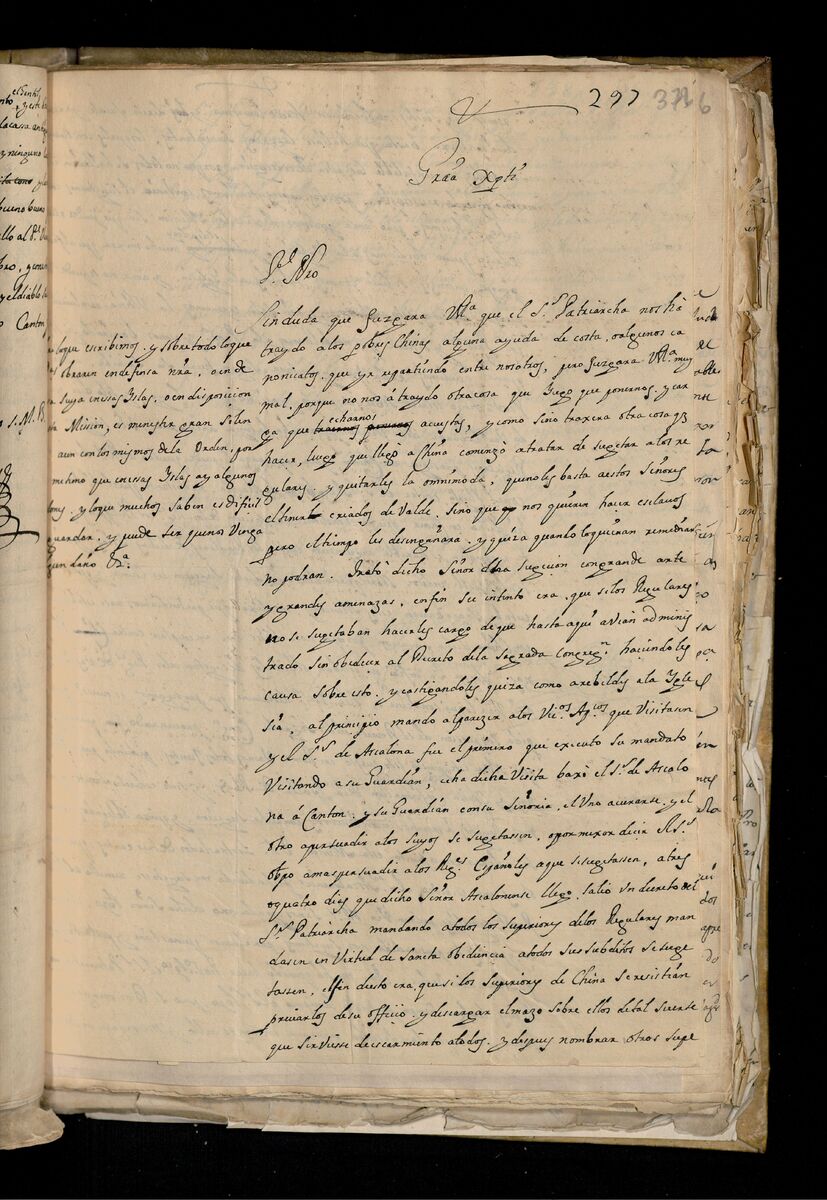 297 376
Graa Xpti
Pe. Nro
Sin duda que Juzgara VRa. que el Sr. Patriarcha nos hà
traydo a los pobres Chinas alguna ayuda de costa, o algunos ca
nonicatos, que yr repartiendo entre nosotros, pero Juzgara VRa. muy
mal, porque no nos a traydo otra cosa que Jugo que ponernos, y car
ga que echarnos acuestas, y como sino traxera otra cosa q
hacer, luego que llegò a China comenzò a tratar de sugetar a los re
gulares, y quitarles la omnimoda, que no les basta a estos Señores
el tener criados de Valde, sino que nos quieren hacer esclavos
pero el tiempo les desengañara, y quiza quando lo quieran remediar
no podran. Tratò dicho Señor dha sugecion con grande arte
y grandes amenazas, en fin su intento era, que si los Regulares
no se sugetaban hacerles cargo de que hasta aqui avian adminis
trado sin obedecer al Decreto de la Sagrada Congregn. haciendoles
causa sobre esto, y castigandoles quiza como a rebeldes a la Ygle
sia, al principio mando a los Vic.os Ap.cos que Visitasen
y el Sr. de Ascalona fue el primero que executo su mandato
Visitando a su Guardian, echa dicha Visita baxò el Sr. de Ascalo
na à Canton, y su Guardian con su Señoria, el Uno a curarse, y el
otro a persuadir a los suyos se sugetassen, o por mexor decir el Sr.
Obpo a mas persuadir a los Regs. Españoles a que se sugetassen, a tres
o quatro dias que dicho Señor Ascalonense llego, saliò Un decreto del
Sr. Patriarcha mandando a todos los Superiores de los Regulares man
dasen en Virtud de Sancta obediencia a todos sus subditos se suge
tassen, el fin de esto era, que si los Superiores de China se resistian
privarlos de su officio, y descargar el mazo sobre ellos de tal suerte
que sirviesse de escarmiento a todos, y despues nombrar otros supe
lo que escribimos, y sobre todo lo que
obraren en defensa nra, o en de
suya en essas Islas, o en disposicion
Mission, es menester gran silen
aun con los mismos de la Orden, por
me temo que en essas Islas ay algunos
y lo que muchos saben es dificil
guardar, y puede ser que nos Venga
daño &a.